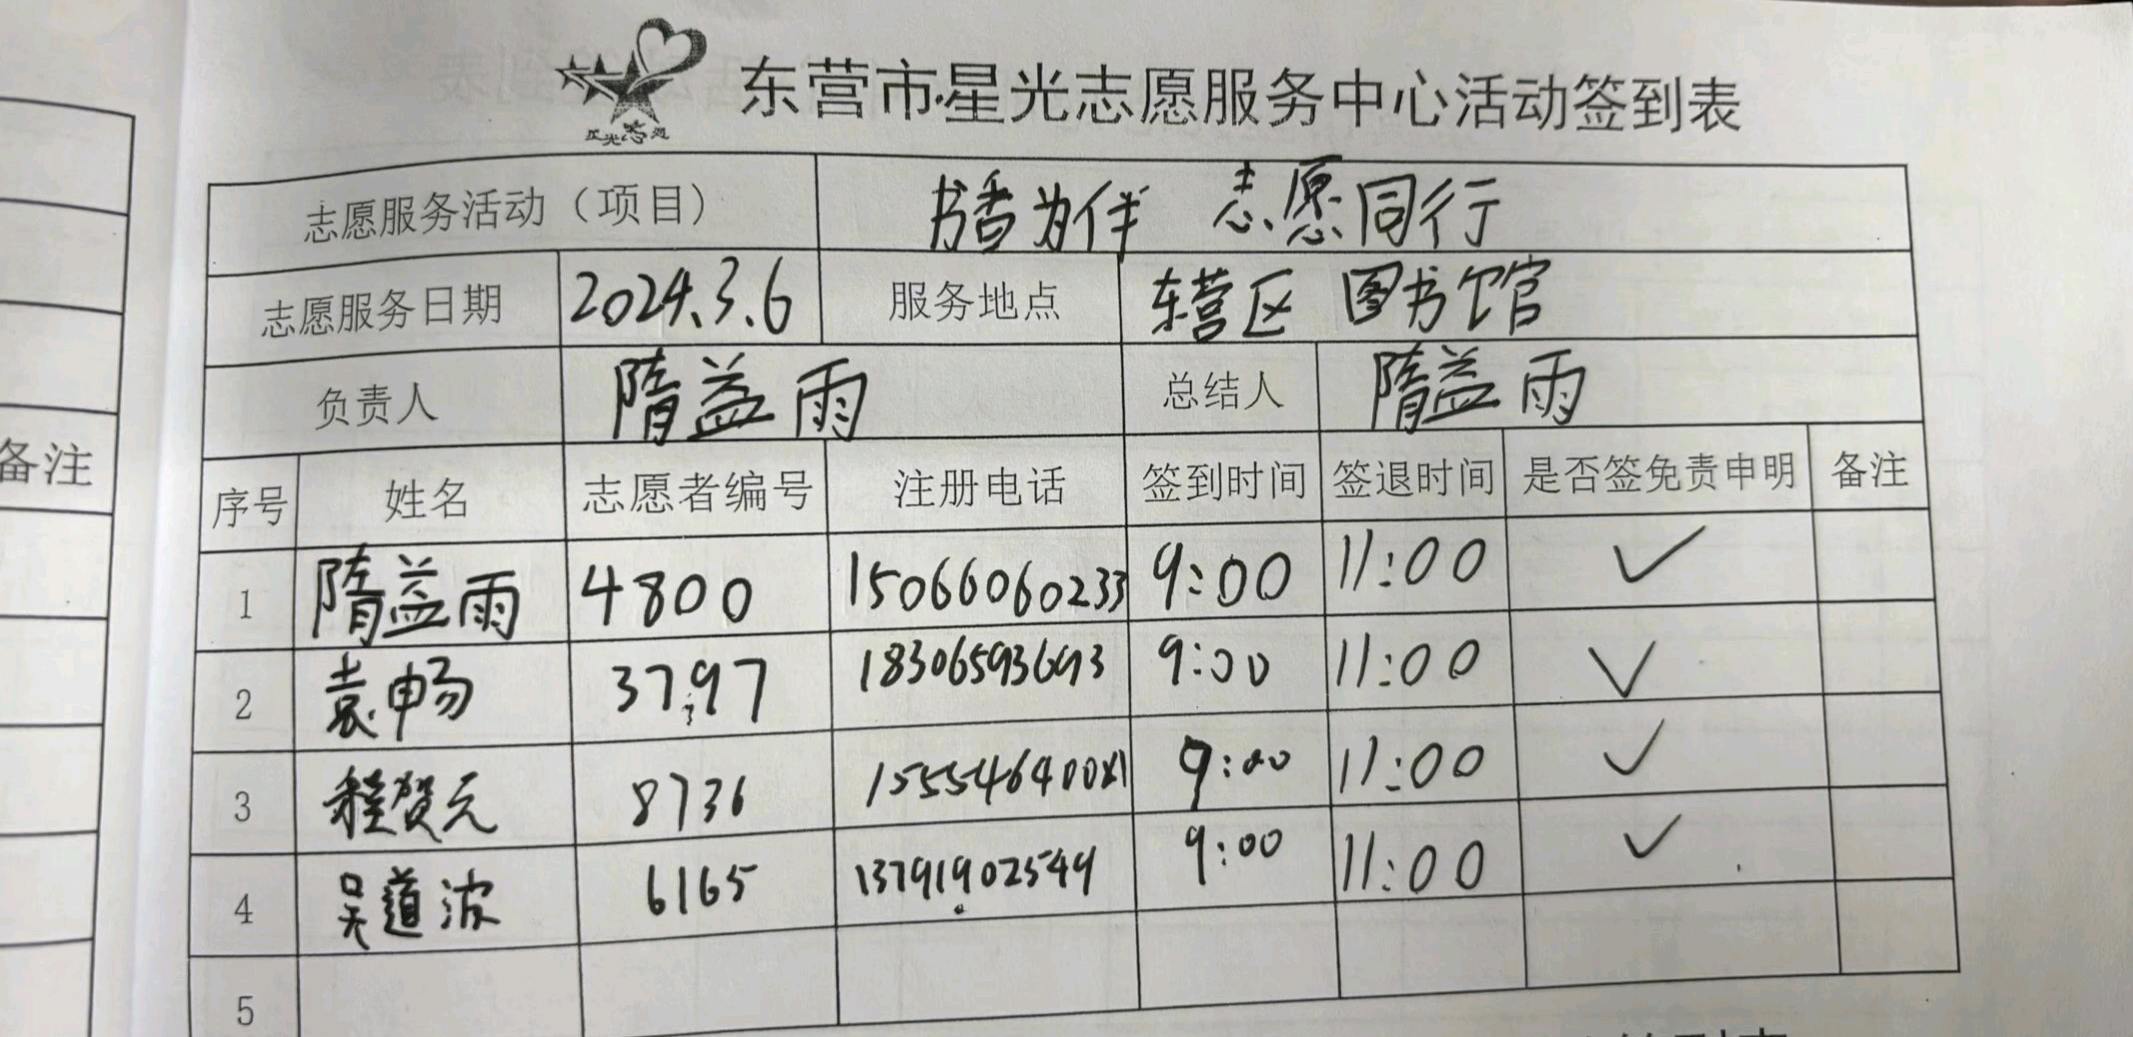 东营市星光志愿服务中心活动签到表
星光志愿
志愿服务活动（项目） 书香为伴 志愿同行
志愿服务日期 2024.3.6 服务地点 东营区 图书馆
负责人 隋益雨 总结人 隋益雨
备注
序号 姓名 志愿者编号 注册电话 签到时间 签退时间 是否签免责申明 备注
1 隋益雨 4800 15066060233 9:00 11:00 ✓
2 袁畅 3797 18306593693 9:00 11:00 ✓
3 程贺元 8736 9:00 11:00 ✓
4 吴道波 6165 13791902549 9:00 11:00 ✓
5